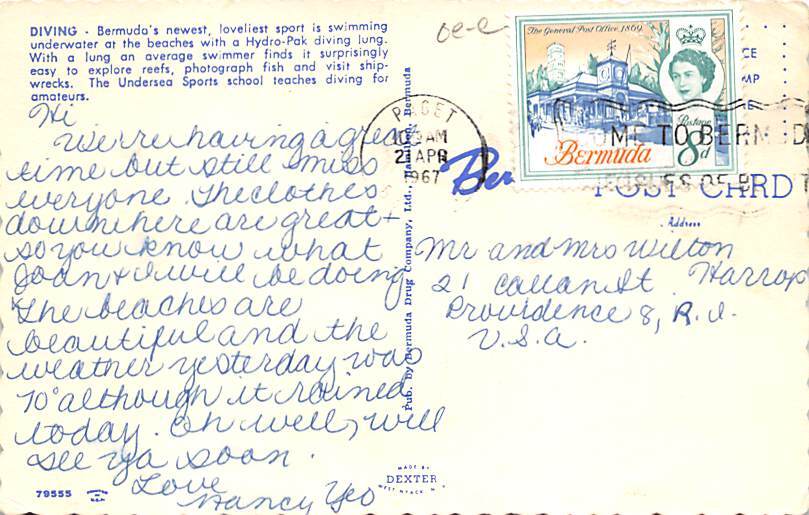 DIVING - Bermuda's newest, loveliest sport is swimming
underwater at the beaches with a Hydro-Pak diving lung.
With a lung an average swimmer finds it surprisingly
easy to explore reefs, photograph fish and visit ship-
wrecks. The Undersea Sports school teaches diving for
amateurs.
Hi
We're having a great
time but still miss
everyone. The clothes
down here are great +
so you know what
Joan + I will be doing.
The beaches are
beautiful and the
weather yesterday was
70° although it rained
today. Oh well, will
see ya soon.
Love
Nancy Yeo
79555
Pub. by Bermuda Drug Company, Ltd., Hamilton, Bermuda
MADE BY
DEXTER
WEST NYACK N.Y.
PAGET
AM
21 APR
1967
The General Post Office, 1869
Postage
8d
Bermuda
Ber
POST CARD
Address
Mr and Mrs Wilton
Harrop
21 Callan St.
Providence 8, R.I.
U.S.A.